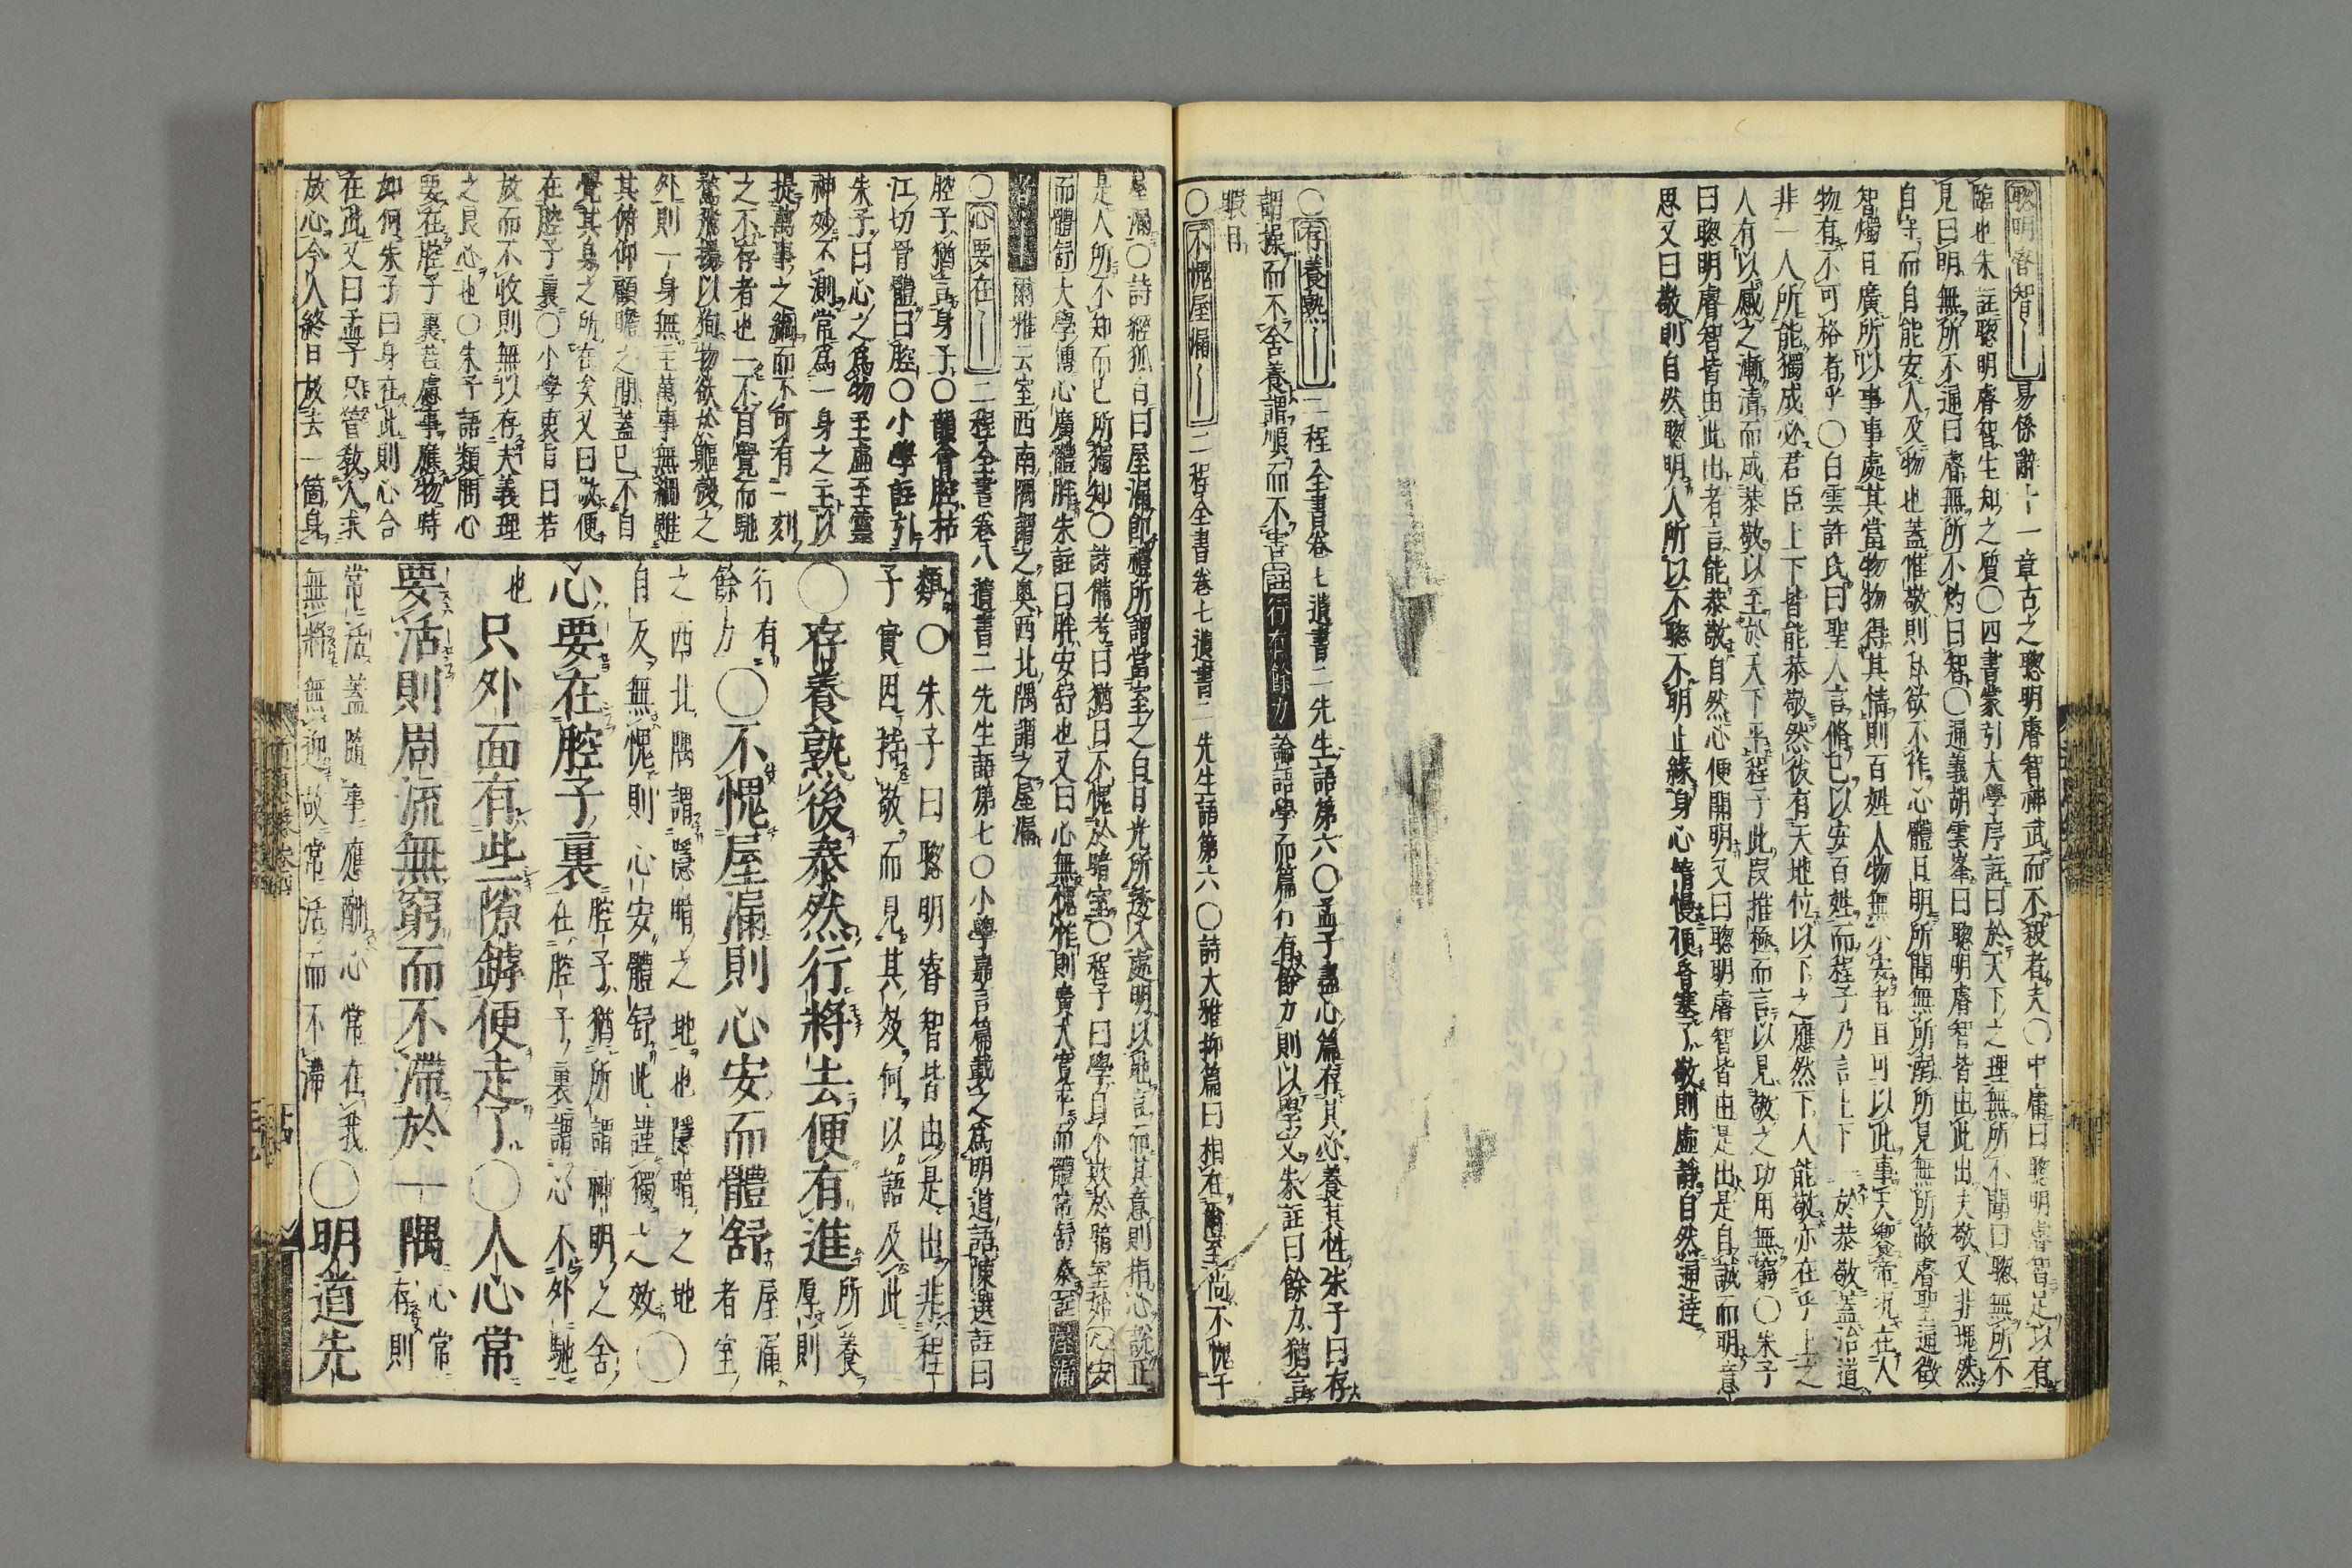 聦明睿智｜易係辭十一章古之聦明睿智神武而不殺者夫〇中庸曰聦明睿智足以有
臨也朱註聦明睿智生知之質〇四書蒙引大學序註曰於天下之理無所不聞曰聦無所不
見曰明無所不通曰睿無所不灼曰智〇通義胡雲峯曰聦明睿智皆由此出夫敬又非塊然
自守而自能安人及物也蓋惟敬則私欲不作心體日明所聞無所溺所見無所蔽睿聖通徵
智燭日廣所以事事處其當物物得其情則百姓人物無不安者且可以此事天饗帝況在人
物有不可格者乎〇白雲許氏曰聖人言脩己以安百姓而程子乃言上下一於恭敬蓋治道
非一人所能獨成必君臣上下皆能恭敬然後有天地位以下之應然下人能敬亦在乎上之
人有以感之漸漬而成恭敬以至於天下平程子此段推極而言以見敬之功用無窮〇朱子
曰聦明睿智皆由此出者言能恭敬自然心便開明又曰聦明睿智皆由是出是自誠而明意
思又曰敬則自然聦明人所以不聦不明止緣身心惰慢便昏塞了敬則虛靜自然通達
〇存養熟｜二程全書卷七遺書二先生語第六〇孟子盡心篇存其心養其性朱子曰存
謂操而不舍養謂順而不害註行有餘力論語學而篇行有餘力則以學文朱註曰餘力猶言
暇日
〇不愧屋漏｜二程全書卷七遺書二先生語第六〇詩大雅抑篇曰相在爾室尚不愧于
屋漏〇詩經狐白曰屋漏即禮所謂當室之白日光所發入處明以地言而其意則指心說正
是人所不知而己所獨知〇詩備考曰猶曰不愧於暗室〇程子曰學自不欺於暗室始心安
而體舒大學傳心廣體胖朱註曰胖安舒也又曰心無愧怍則廣大寬平而體常舒泰註屋漏
者爾雅云室西南隅謂之奧西北隅謂之屋漏
〇心要在｜二程全書卷八遺書二先生語第七〇小學嘉言篇載之爲明道語陳選註曰
腔子猶言身子〇韻會腔枯
江切骨體曰腔〇小學註引
朱子曰心之爲物至虛至靈
神妙不測常爲一身之主以
提萬事之綱而不可有一刻
之不存者也一不自覺而馳
騖飛揚以狥物欲於軀殼之
外則一身無主萬事無綱雖
其俯仰顧瞻之間蓋已不自
覺其身之所在矣又曰敬便
在腔子裏〇小學衷旨曰若
放而不收則無以存夫義理
之良心也〇朱子語類問心
要在腔子裏若慮事應物時
如何朱子曰身在此則心合
在此又曰孟子只管敎人求
放心今人終日放去一箇身
類〇朱子曰聦明睿智皆由是出非程
子實因持敬而見其效何以語及此
〇存養熟後泰然行將去便有進所養厚則
行有餘力〇不愧屋漏則心安而體舒屋漏者室
之西北隅謂隱暗之地也隱暗之地
自反無愧則心安體舒此謹獨之效〇
心要在腔子裏腔子猶所謂神明之舍在腔子裏謂心不外馳
也只外面有些隙鏬便走了〇人心常
要活則周流無窮而不滯於一隅心常存則
常活蓋隨事應酬心常在我
無將無迎故常活而不滯〇明道先